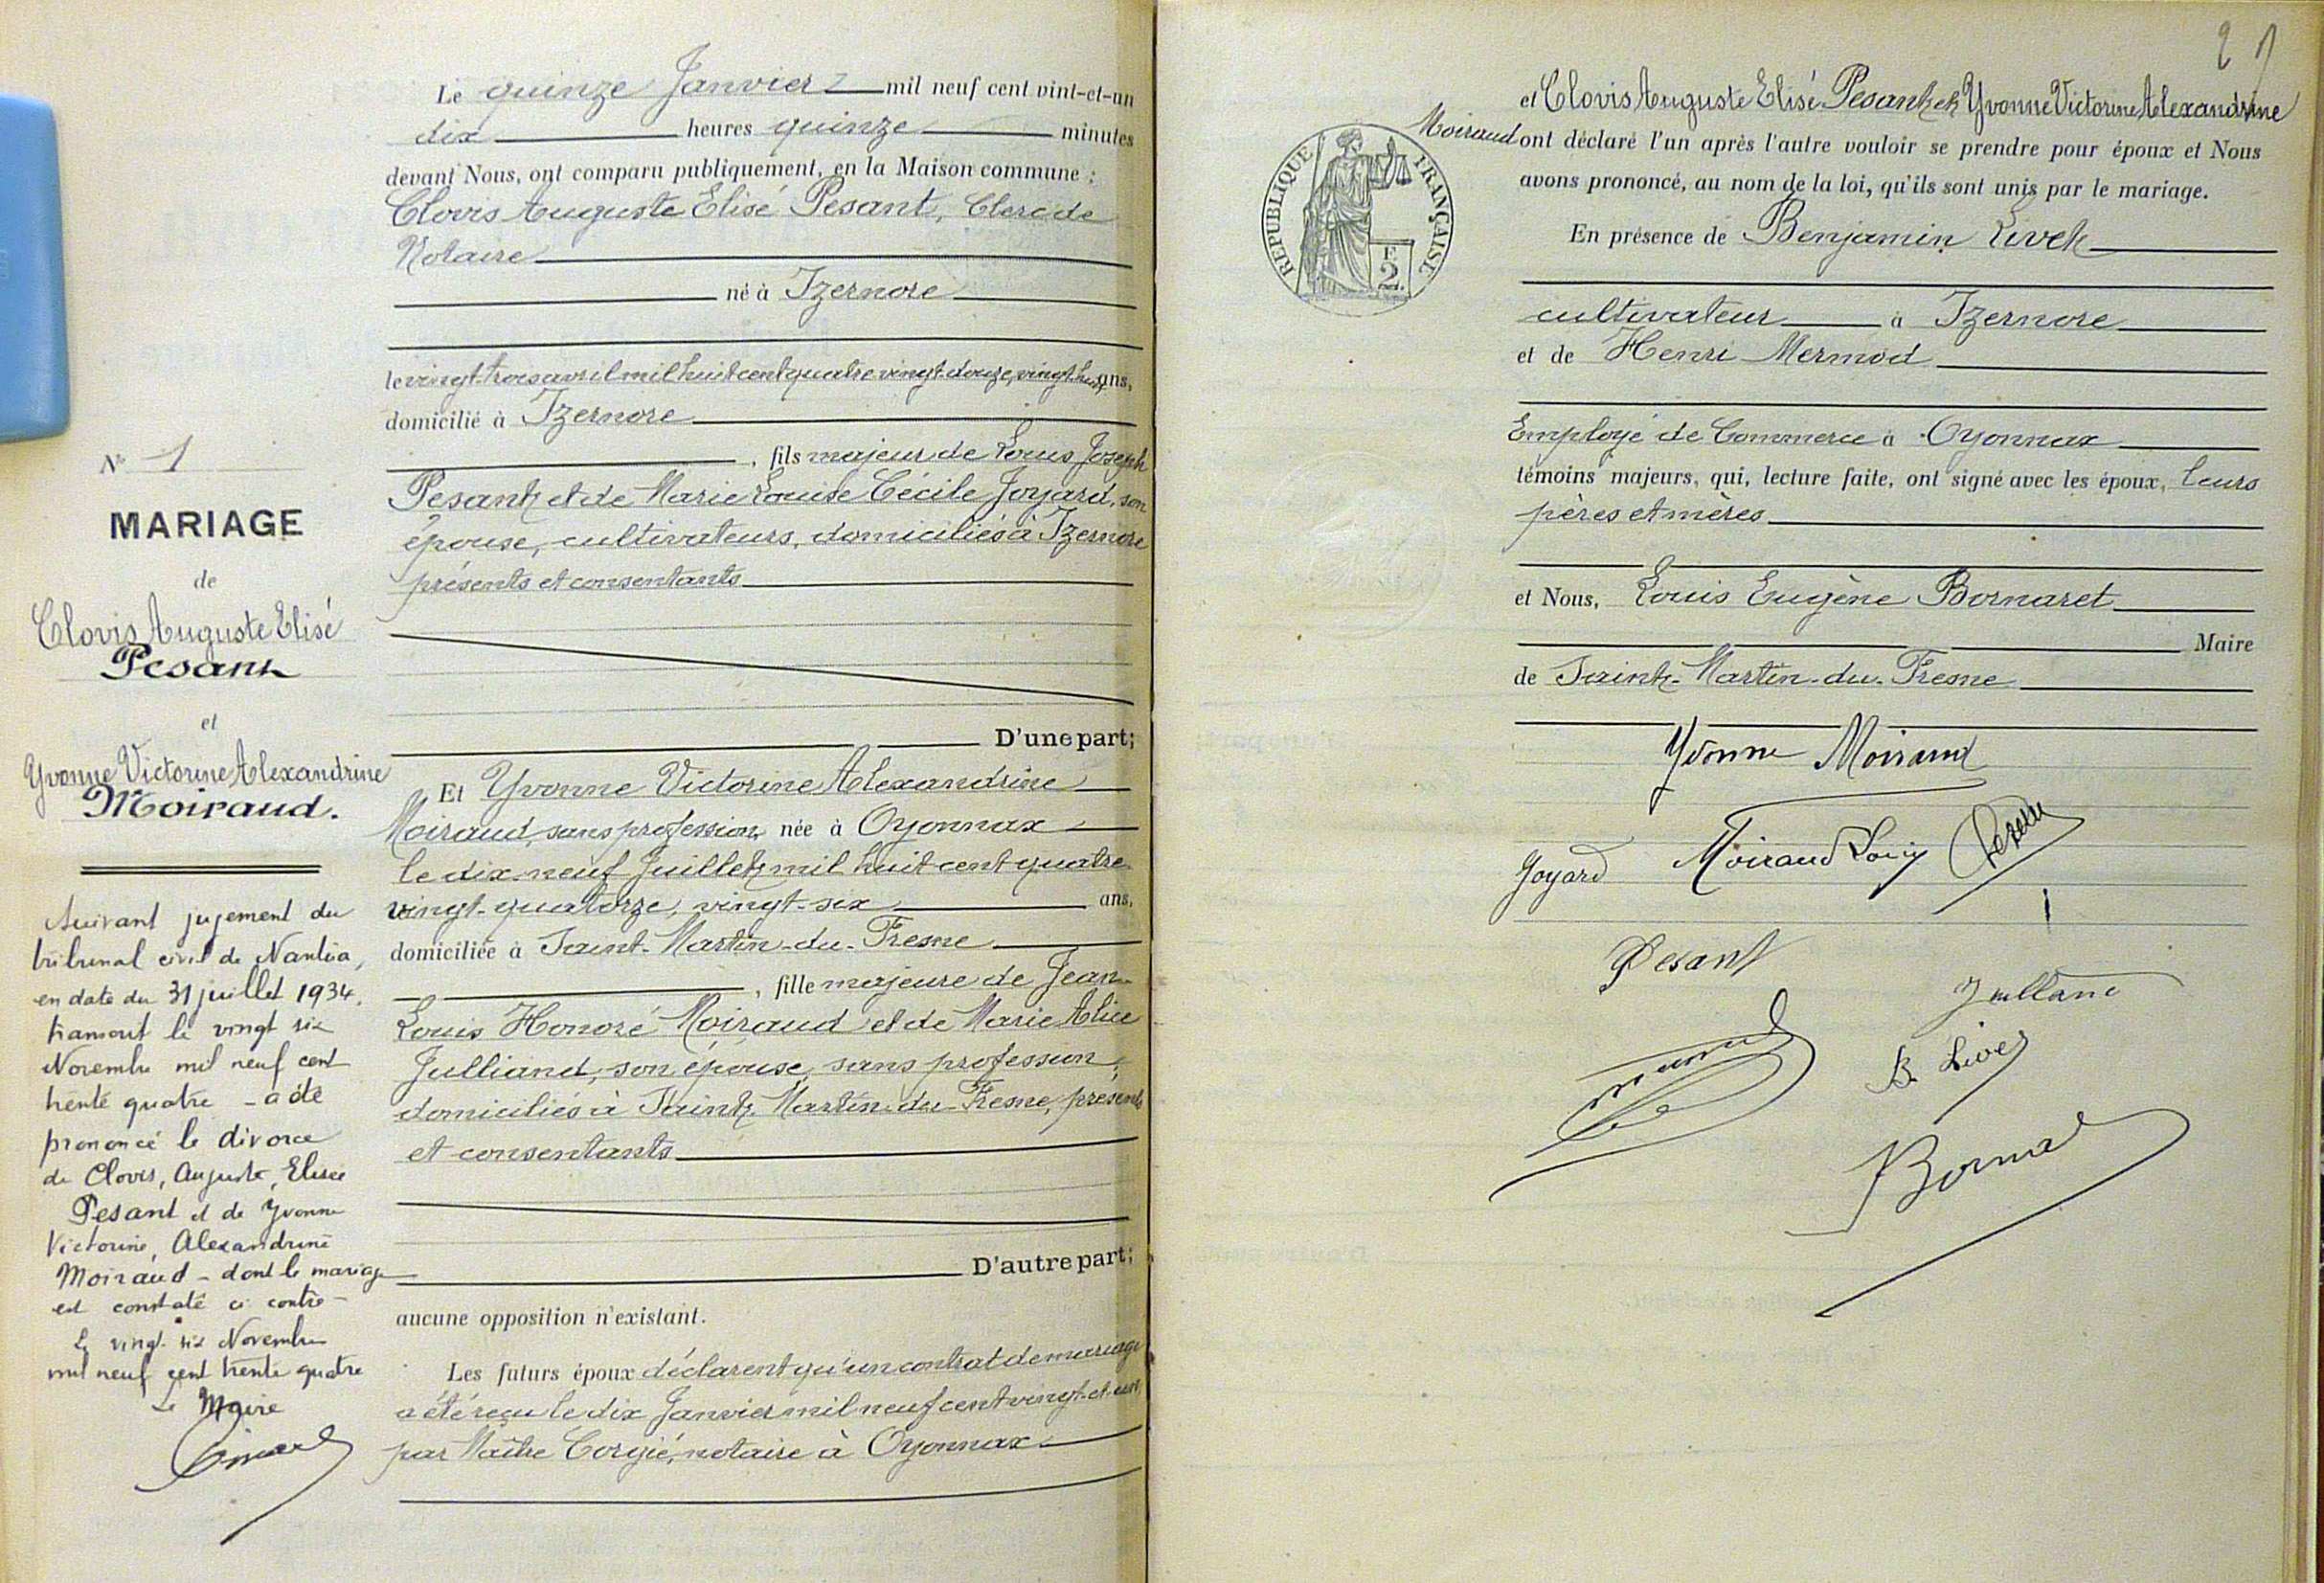 Le quinze Janvier mil neuf cent vint-et-un
dix heures quinze minutes
devant Nous, ont comparu publiquement, en la Maison commune :
Clovis Auguste Elisé Pesant, Clerc de
Notaire
né à Izernore
le vingt-trois avril mil huit cent quatre vingt-douze, vingt-huit ans,
domicilié à Izernore
, fils majeur de Louis Joseph
Pesant et de Marie Louise Cécile Joyard, son
épouse, cultivateurs, domiciliés à Izernore
présents et consentants
D'une part;
Et Yvonne Victorine Alexandrine
Moiraud, sans profession, née à Oyonnax
le dix-neuf Juillet mil huit cent quatre
vingt-quatorze, vingt-six ans,
domiciliée à Saint-Martin-du-Fresne
, fille majeure de Jean-
Louis Honoré Moiraud et de Marie Alice
Julliand, son épouse, sans profession,
domiciliés à Saint-Martin-du-Fresne, présents
et consentants
D'autre part;
aucune opposition n'existant.
Les futurs époux déclarent qu'un contrat de mariage
a été reçu le dix Janvier mil neuf cent vingt-et-un
par Maître notaire à Oyonnax
N° 1
MARIAGE
de
Clovis Auguste Elisé
Pesant
et
Yvonne Victorine Alexandrine
Moiraud.
Suivant jugement du
tribunal civil de Nantua,
en date du 31 juillet 1934,
transcrit le vingt six
Novembre mil neuf cent
trente quatre - a été
prononcé le divorce
de Clovis, Auguste, Elisée
Pesant et de Yvonne
Victorine, Alexandrine
Moiraud - dont le mariage
est constaté ci contre -
Le vingt six Novembre
mil neuf cent trente quatre
Le Maire
2
et Clovis Auguste Elisé Pesant et Yvonne Victorine Alexandrine
Moiraud ont déclaré l'un après l'autre vouloir se prendre pour époux et Nous
avons prononcé, au nom de la loi, qu'ils sont unis par le mariage.
RÉPUBLIQUE FRANÇAISE
F
2.
En présence de Benjamin Livet
cultivateur à Izernore
et de Henri Mermod
Employé de Commerce à Oyonnax
témoins majeurs, qui, lecture faite, ont signé avec les époux, leurs
pères et mères
et Nous, Louis Eugène Bornaret
Maire
de Saint-Martin-du-Fresne
Yvonne Moiraud
Joyard Moiraud Louis
Pesant
B. Livet